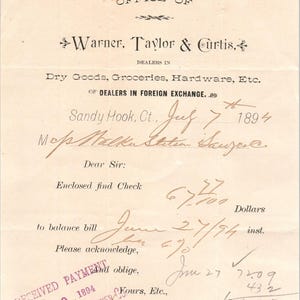 OFFICE OF
Warner, Taylor & Curtis,
DEALERS IN
Dry Goods, Groceries, Hardware, Etc.
DEALERS IN FOREIGN EXCHANGE.
Sandy Hook, Ct., July 7th 1894
M
Dear Sir:
Enclosed find Check
67 77/100
Dollars
to balance bill June 27/94 inst.
less 6%
Please acknowledge,
And oblige,
June 27 7209
432
Yours, Etc.,
RECEIVED PAYMENT
1894